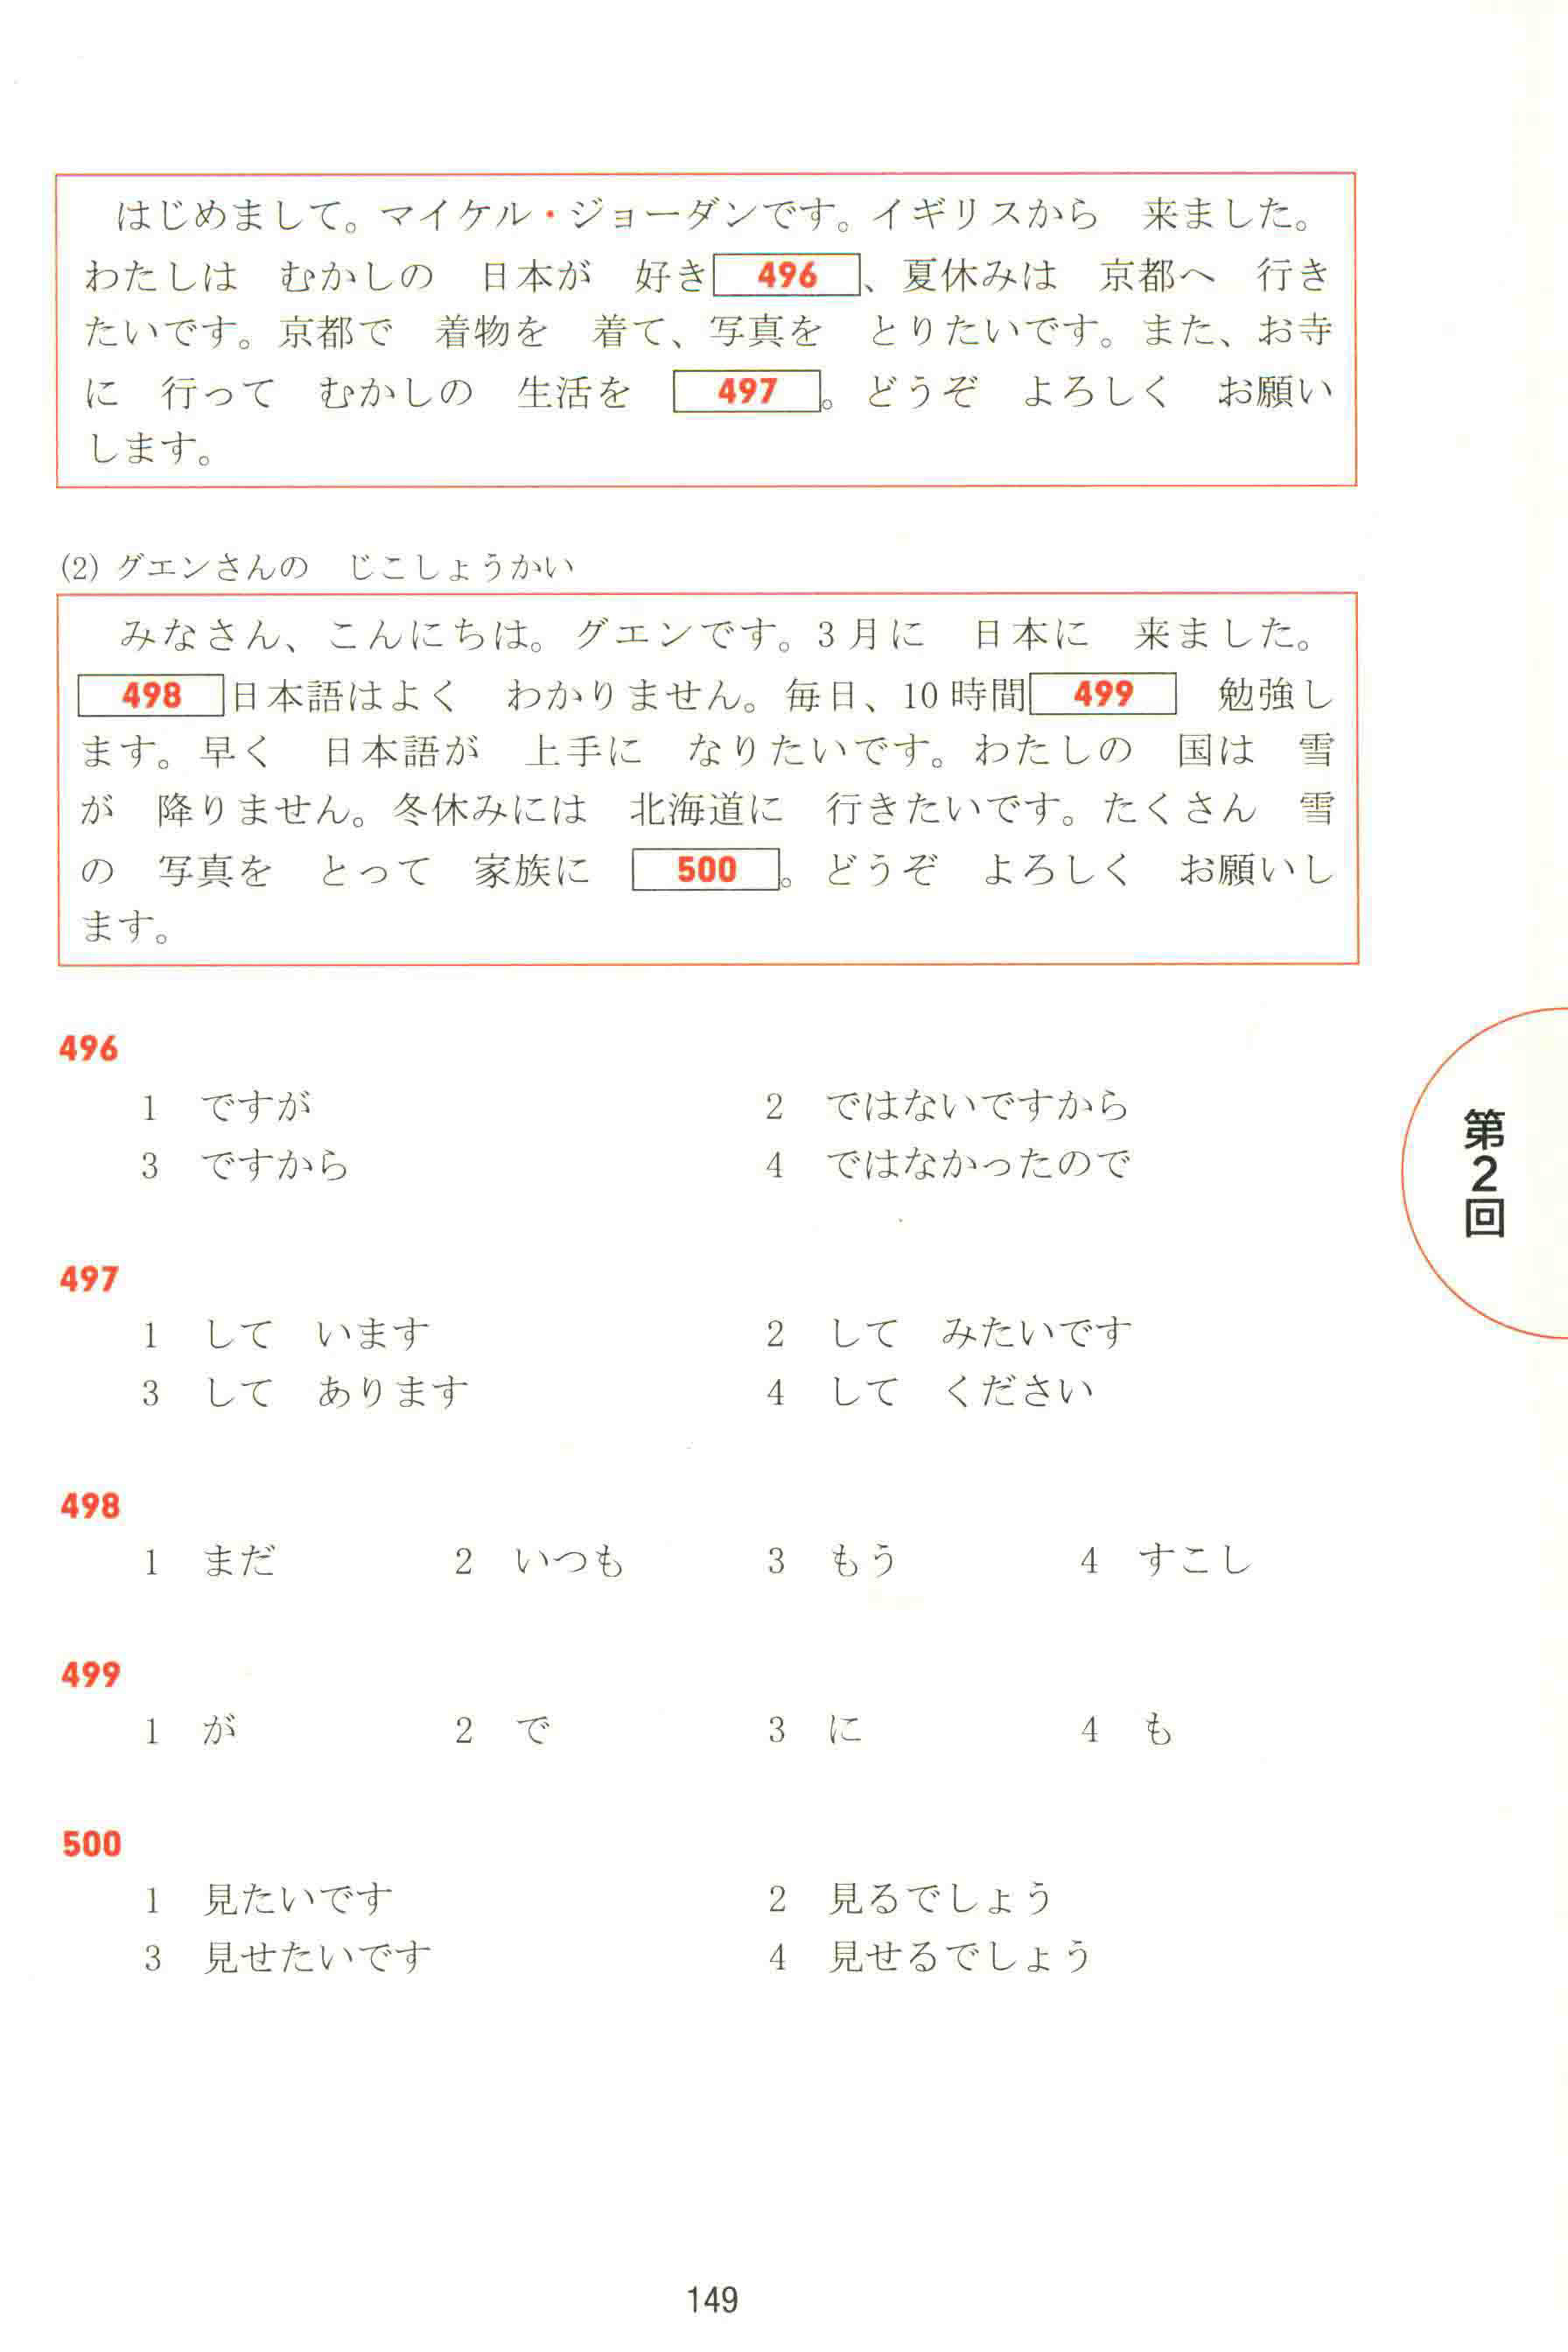 はじめまして。マイケル・ジョーダンです。イギリスから　来ました。
わたしは　むかしの　日本が　好き 496 、夏休みは　京都へ　行き
たいです。京都で　着物を　着て、写真を　とりたいです。また、お寺
に　行って　むかしの　生活を　497 。どうぞ　よろしく　お願い
します。
(2) グエンさんの　じこしょうかい
みなさん、こんにちは。グエンです。3月に　日本に　来ました。
498 日本語はよく　わかりません。毎日、10時間 499　勉強し
ます。早く　日本語が　上手に　なりたいです。わたしの　国は　雪
が　降りません。冬休みには　北海道に　行きたいです。たくさん　雪
の　写真を　とって　家族に　500 。どうぞ　よろしく　お願いし
ます。
496
1　ですが　2　ではないですから
3　ですから　4　ではなかったので
497
1　して　います　2　して　みたいです
3　して　あります　4　して　ください
498
1　まだ　2　いつも　3　もう　4　すこし
499
1　が　2　で　3　に　4　も
500
1　見たいです　2　見るでしょう
3　見せたいです　4　見せるでしょう
第2回
149